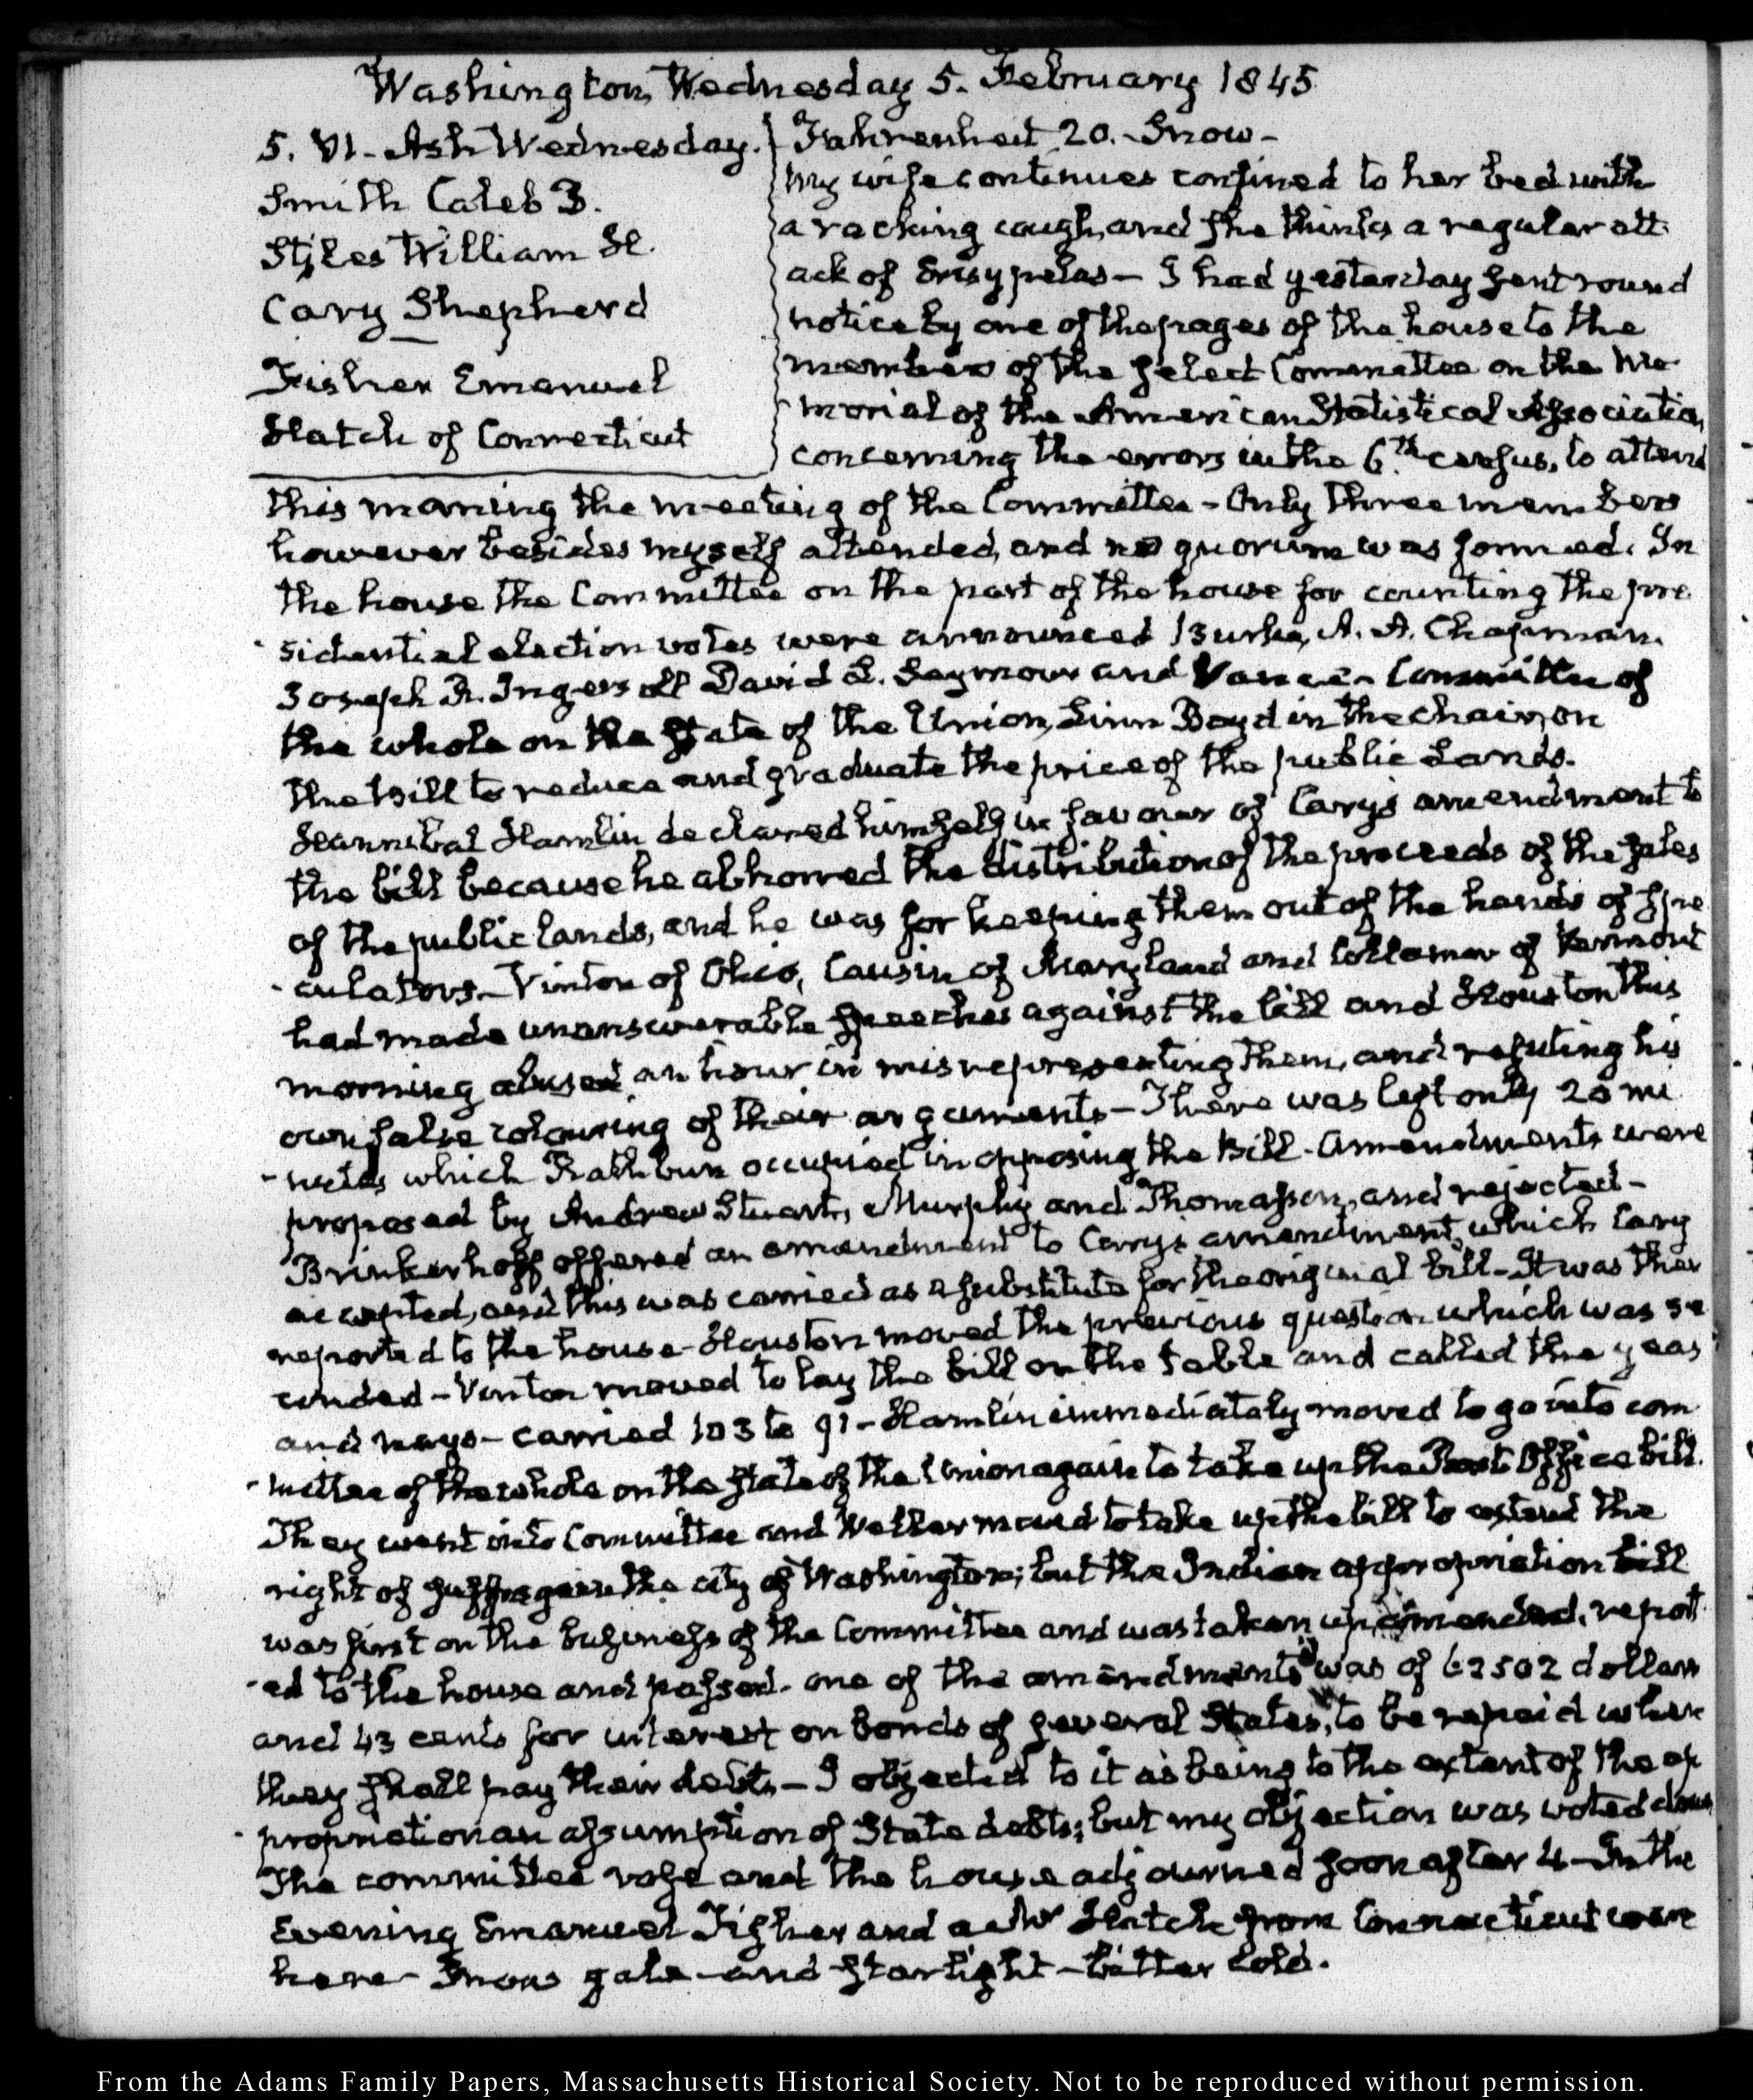 Washington, Wednesday 5. February 1845
5. VI. Ash Wednesday.
Smith Caleb B.
Stiles William H.
Cary Shepherd
Fisher Emanuel
Hatch of Connecticut
Fahrenheit 20. Snow-
My wife continues confined to her bed with
a racking cough, and she thinks a regular att-
ack of Erisypelas - I had yesterday sent round
notice by one of the pages of the house to the
members of the select Committee on the Me-
-morial of the American Statistical Association,
concerning the errors in the 6th. census, to attend
this morning the meeting of the Committee - Only three members
however besides myself attended, and no quorum was formed. In
the house the Committee on the part of the house for counting the pre-
-sidential election votes were announced Burke, A. A. Chapman.
Joseph R. Ingersoll David L. Seymour and Vance - Committee of
the whole on the state of the Union, Linn Boyd in the chair, on
the bill to reduce and graduate the price of the public Lands.
Hannibal Hamlin declared himself in favour of Cary's amendment to
the bill because he abhorred the distribution of the proceeds of the sales
of the public lands, and he was for keeping them out of the hands of spe-
-culators - Vinton of Ohio, Causin of Maryland and Collamer of Vermont
had made unanswerable speeches against the bill and Houston this
morning abused an hour in misrepresenting them, and refuting his
own false colouring of their arguments - There was left only 20 mi-
-nutes which Rathbun occupied in opposing the Bill. Amendments were
proposed by Andrew Stuart, Murphy and Thomasson, and rejected -
Brinkerhoff offered an amendment to Cary's amendment, which Cary
accepted, and this was carried as a substitute for the original bill - It was then
reported to the house - Houston moved the previous question which was se-
conded - Vinton moved to lay the bill on the table and called the yeas
and nays - carried 103 to 91 - Hamlin immediately moved to go into com-
-mittee of the whole on the state of the Union again to take up the Post Office bill.
They went into Committee and Weller moved to take up the bill to extend the
right of suffrage in the city of Washington; but the Indian appropriation bill
was first on the business of the Committee and was taken up, amended, report-
-ed to the house and passed. one of the amendments was of 62502 dollars
and 43 cents for interest on bonds of several States, to be repaid when
they shall pay their debts - I objected to it as being to the extent of the ap-
-propriation an assumption of State debts; but my objection was voted down
The committee rose and the house adjourned soon after 4 - In the
Evening Emanuel Fisher and a Mr Hatch from Connecticut were
here - Snow gale and starlight - bitter cold.
From the Adams Family Papers, Massachusetts Historical Society. Not to be reproduced without permission.